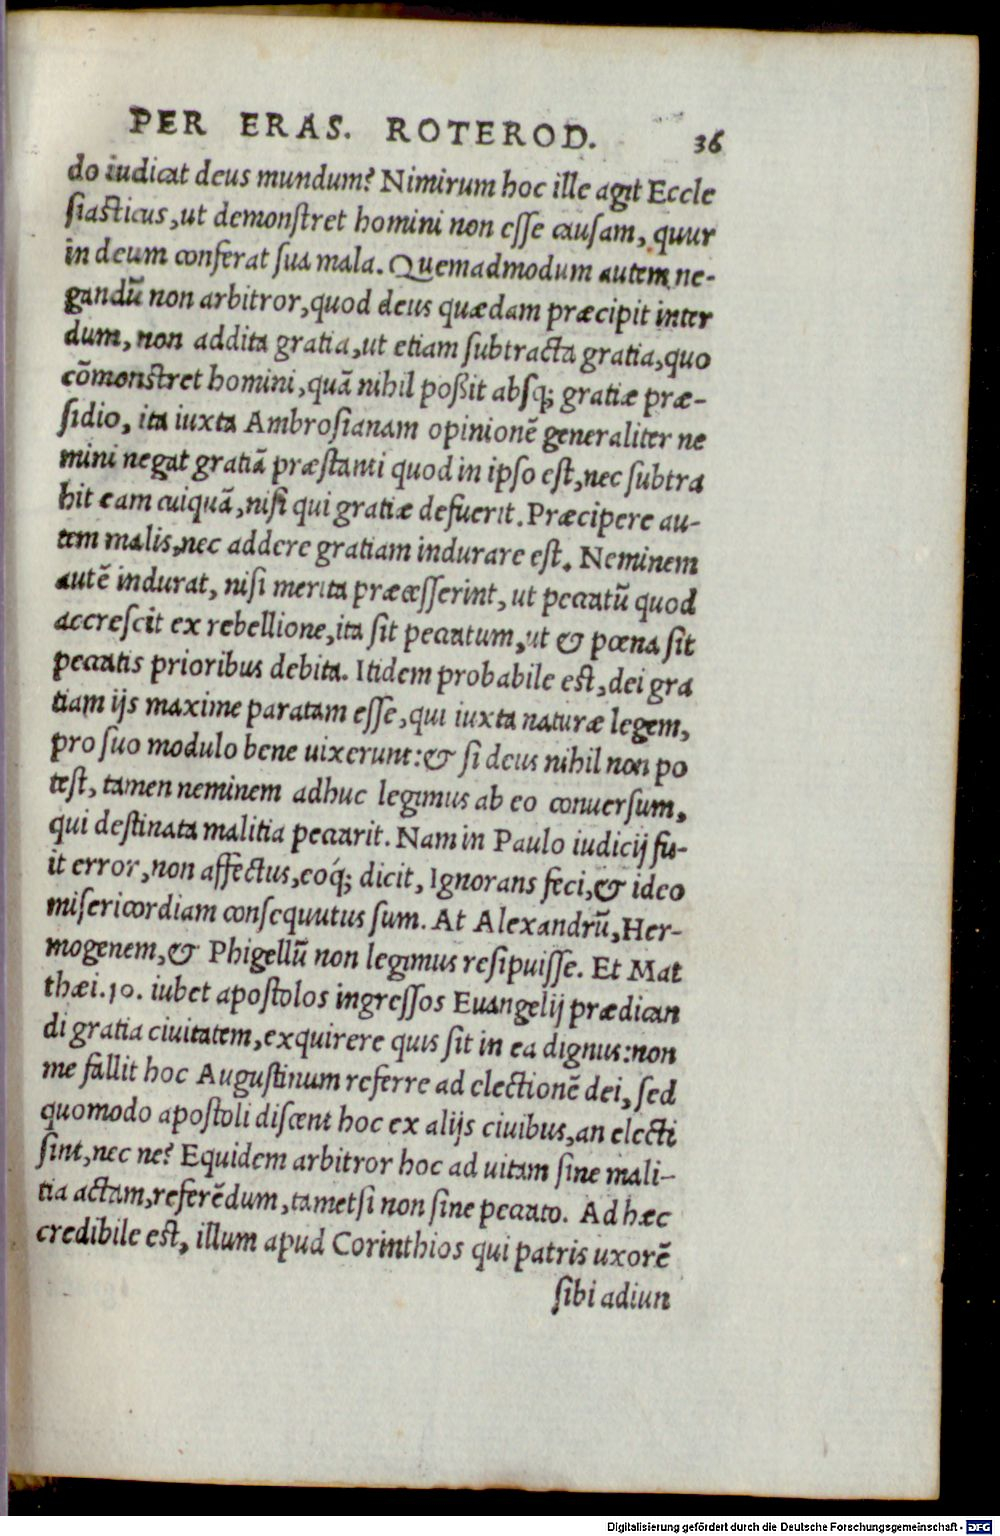 PER ERAS. ROTEROD. 36
do iudicat deus mundum? Nimirum hoc ille agit Eccle
siasticus, ut demonstret homini non esse causam, quur
in deum conferat sua mala. Quemadmodum autem ne-
gandũ non arbitror, quod deus quædam præcipit inter
dum, non addita gratia, ut etiam subtracta gratia, quo
cõmonstret homini, quã nihil poßit absq; gratiæ præ-
sidio, ita iuxta Ambrosianam opinionẽ generaliter ne
mini negat gratiã præstanti quod in ipso est, nec subtra
hit eam cuiquã, nisi qui gratiæ defuerit. Præcipere au-
tem malis, nec addere gratiam indurare est. Neminem
autẽ indurat, nisi merita præcesserint, ut peccatũ quod
accrescit ex rebellione, ita sit peccatum, ut & pœna sit
peccatis prioribus debita. Itidem probabile est, dei gra
tiam ijs maxime paratam esse, qui iuxta naturæ legem,
pro suo modulo bene uixerunt: & si deus nihil non po
test, tamen neminem adhuc legimus ab eo conuersum,
qui destinata malitia peccarit. Nam in Paulo iudicij fu-
it error, non affectus, eóq; dicit, Ignorans feci, & ideo
misericordiam consequutus sum. At Alexandrũ, Her-
mogenem, & Phigellũ non legimus resipuisse. Et Mat
thæi. 10. iubet apostolos ingressos Euangelij prædican
di gratia ciuitatem, exquirere quis sit in ea dignus: non
me fallit hoc Augustinum referre ad electionẽ dei, sed
quomodo apostoli discent hoc ex alijs ciuibus, an electi
sint, nec ne? Equidem arbitror hoc ad uitam sine mali-
tia actam, referẽdum, tametsi non sine peccato. Ad hæc
credibile est, illum apud Corinthios qui patris uxorẽ
sibi adiun
Digitalisierung gefördert durch die Deutsche Forschungsgemeinschaft - DFG